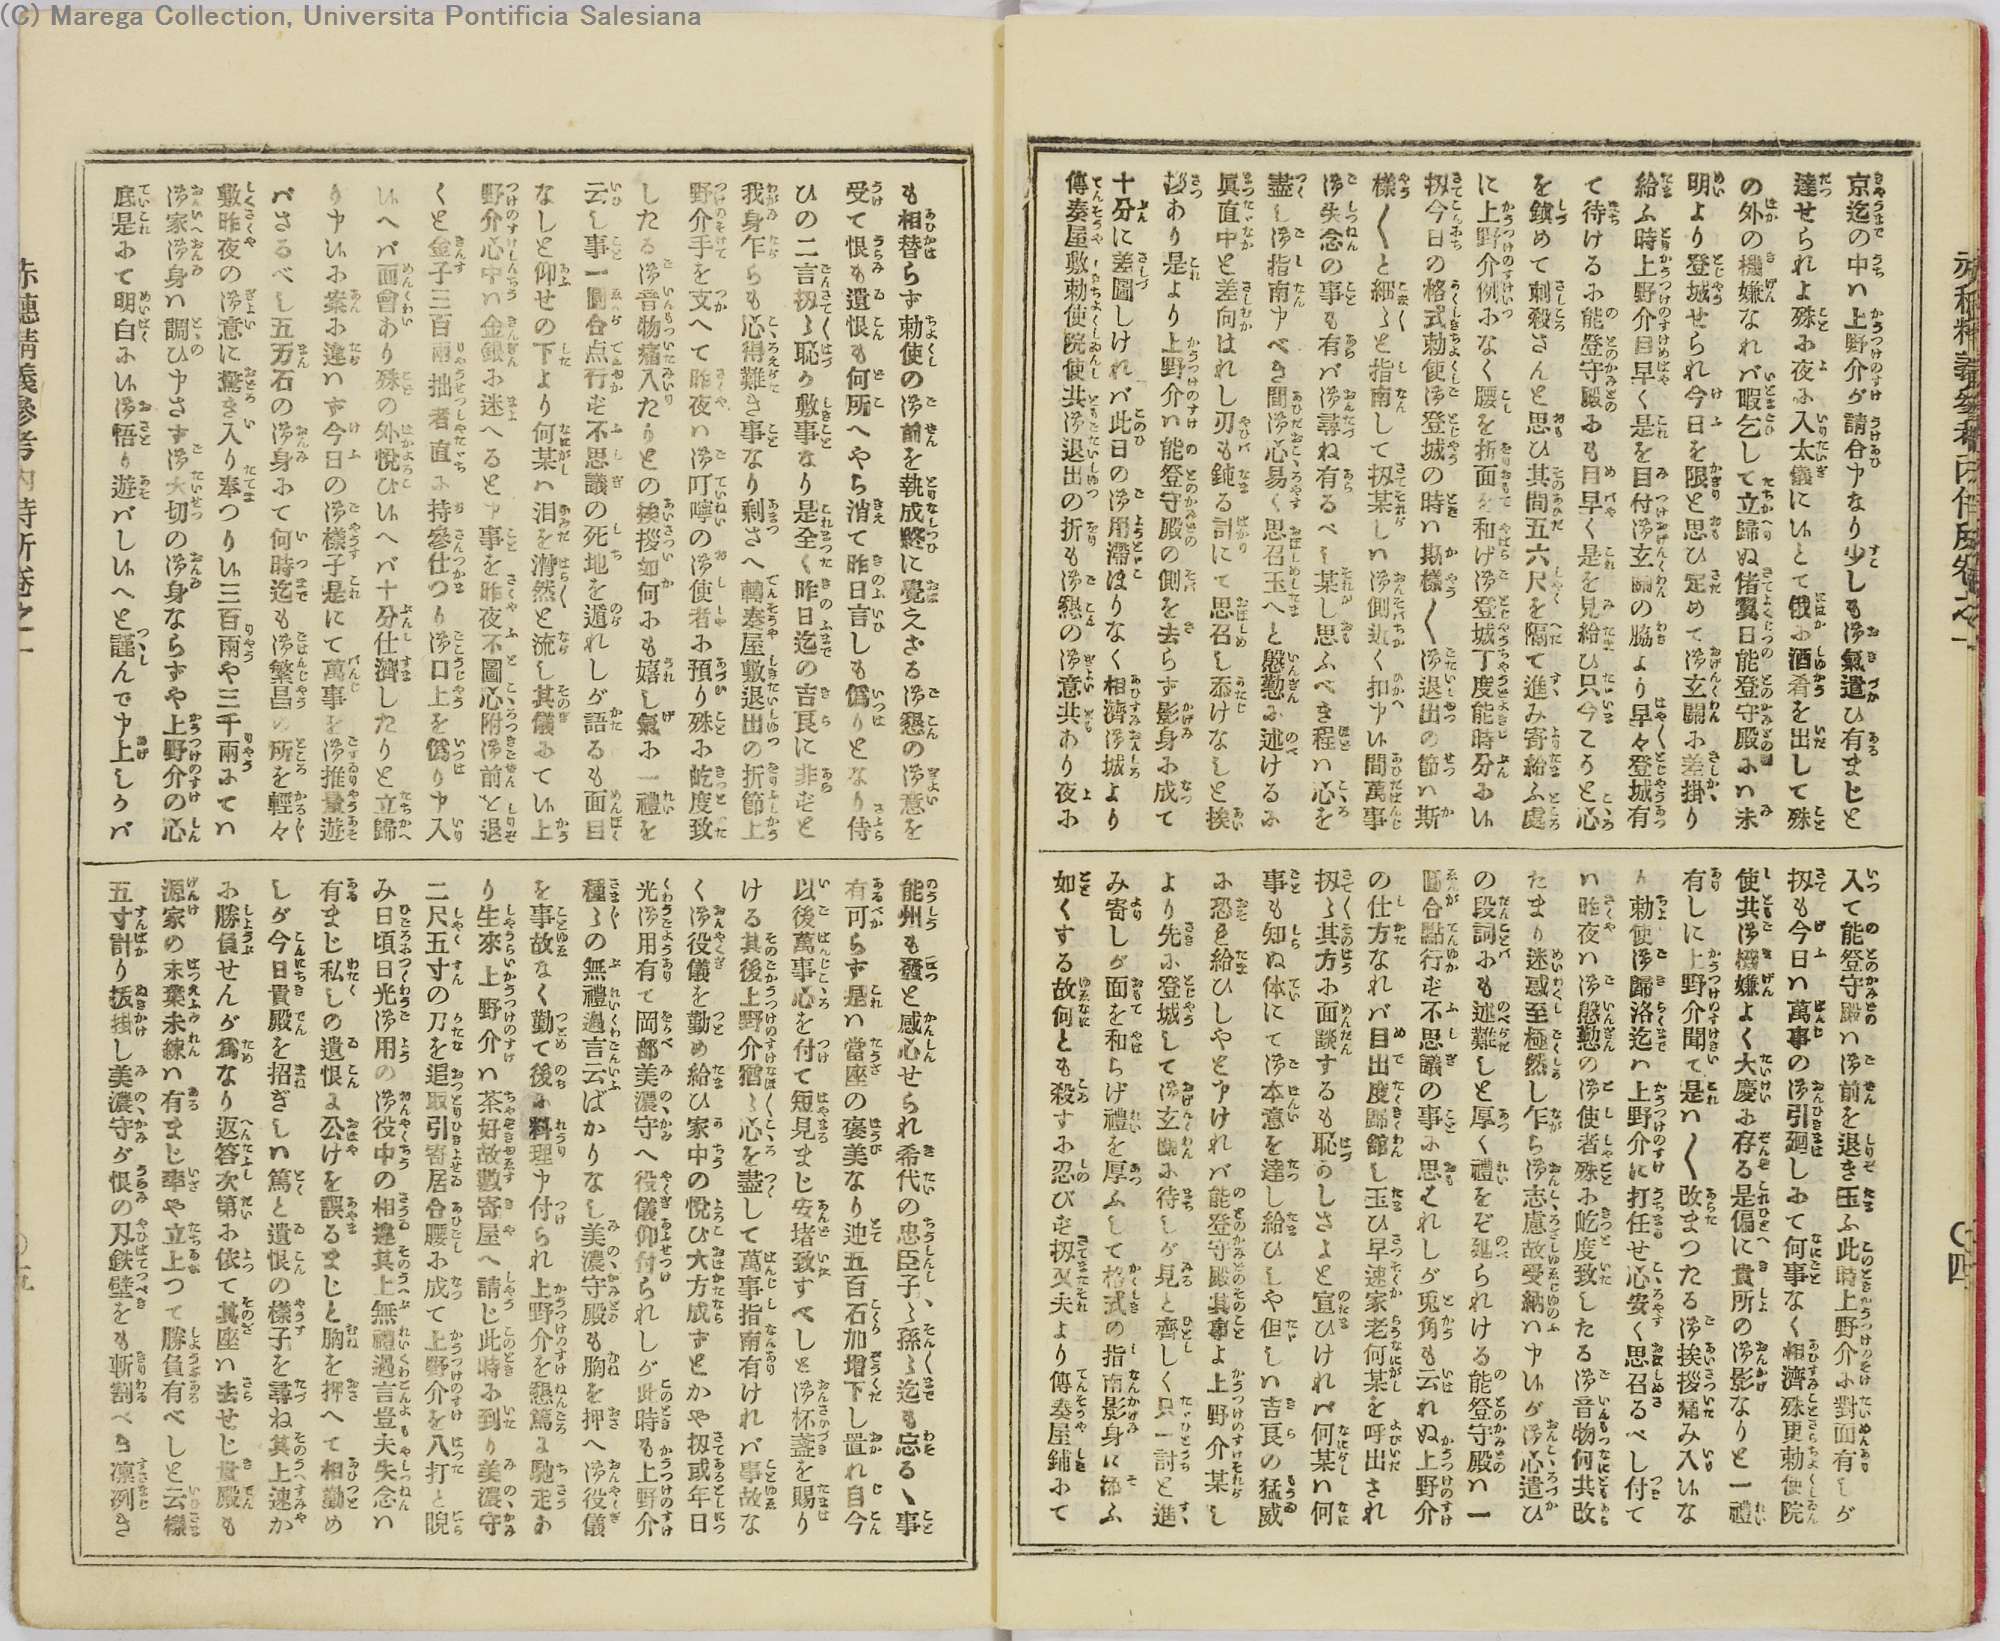 (C) Marega Collection, Universita Pontificia Salesiana
京迄の中ハ上野介が請合申なり少しも御氣遣ひ有まじと
達せられよ殊お夜よ入太儀にいとて俄お酒肴を出して殊
の外の機嫌なれバ暇乞して立歸ぬ偖翼日能登守殿おハ未
明より登城せられ今日を限と思ひ定めて御玄關お差掛り
給ふ時上野介目早く是を目付御玄關の脇より早々登城有
て待けるお能登守殿おも目早く是を見給ひ只今てろと心
を鎭めて刺殺さんと思ひ其間五六尺を隔て進み寄給ふ處
に上野介例おなく腰を折面を和げ御登城丁度能時分おい
扨今日の格式勅使御登城の時ハ斯樣〱御退出の節ハ斯
樣〱と細〻と指南して扨某しハ御側近く扣申い間萬事
御失念の事も有バ御尋ね有るべし某し思ふべき程ハ心を
盡し御指南申べき間御心易く思召玉へと慇懃お述けるお
眞直中と差向はれし刃も鈍る計にて思召し忝けなしと挨
拶あり是より上野介ハ能登守殿の側を去らず影身お成て
十分に差圖しけれバ此日の御用滯はりなく相濟御城より
傳奏屋敷勅使院使共御退出の折も御懇の御意共あり夜お
入て能登守殿ハ御前を退き玉ふ此時上野介お對面有しが
扨も今日ハ萬事の御引廻しおて何事なく相濟殊更勅使院
使共御機嫌よく大慶お存る是偏に貴所の御影なりと一禮
有しに上野介聞て是ハ〱改まつたる御挨拶痛み入いな
り勅使御歸洛迄ハ上野介に打任せ心安く思召るべし付て
ハ昨夜ハ御慇懃の御使者殊お屹度致したる御音物何共改
たまり迷惑至極然し乍ら御志慮故受納ハ申いが御心遣ひ
の段詞おも述難しと厚く禮をぞ延られける能登守殿ハ一
圓合點行ず不思議の事お思されしが兎角も云れぬ上野介
の仕方なれバ目出度歸館し玉ひ早速家老何某を呼出され
扨〻其方お面談するも恥かしさよと宣ひけれバ何某ハ何
事も知ぬ体にて御本意を達し給ひしや但しハ吉良の猛威
お恐を給ひしやと申けれバ能登守殿其事よ上野介某し
より先お登城して御玄關お待しが見と齊しく只一討と進
み寄しが面を和らげ禮を厚ふして格式の指南影身に添ふ
如くする故何とも殺すお忍びず扨又夫より傳奏屋鋪おて
も相替らず勅使の御前を執成終に覺えざる御懇の御意を
受て恨も遺恨も何所へやら消て昨日言しも僞りとなり侍
ひの二言扨〻恥か敷事なり是全く昨日迄の吉良に非ずと
我身乍らも心得難き事なり剩さへ轉奏屋敷退出の折節上
野介手を支へて昨夜ハ御叮嚀の御使者お預り殊お屹度致
したる御音物痛入たりとの挨拶如何おも嬉し氣お一禮を
云し事一圓合点行ず不思議の死地を遁れしが語るも面目
なしと仰せの下より何某ハ泪を潸然と流し其儀おてい上
野介心中ハ金銀お迷へると申事を昨夜不圖心附御前を退
くと金子三百兩拙者直お持參仕つり御口上を僞り申入
いへバ面會あり殊の外悅ひいへバ十分仕濟したりと立歸
り申いお案お違ハず今日の御樣子是にて萬事を御推量遊
バさるべし五万石の御身おて何時迄も御繁昌の所を輕々
敷昨夜の御意に驚き入り奉つりい三百兩や三千兩おてハ
御家御身ハ調ひ申さず御大切の御身ならずや上野介の心
底是おて明白おい御悟り遊バしいへと謹んで申上しかバ
能州も發と感心せられ希代の忠臣子〻孫〻迄も忘るゝ事
有可らず是ハ當座の褒美なり迚五百石加增下し置れ自今
以後萬事心を付て短見まじ安堵致すべしと御杯盞を賜り
ける其後上野介猶〻心を盡して萬事指南有けれバ事故な
く御役儀を勤め給ひ家中の悅び大方成ずとかや扨或年日
光御用有て岡部美濃守へ役儀仰付られしが此時も上野介
種〻の無禮過言云ばかりなし美濃守殿も胸を押へ御役儀
を事故なく勤て後お料理申付られ上野介を懇篤よ馳走あ
り生來上野介ハ茶好故數寄屋へ請じ此時お到り美濃守
二尺五寸の刀を追取引寄居合腰お成て上野介を八打と睨
み日頃日光御用の御役中の相違其上無禮過言豈夫失念ハ
有まじ私しの遺恨よ公けを誤るまじと胸を押へて相勤め
しが今日貴殿を招ぎしハ篤と遺恨の樣子を尋ね其上速か
お勝負せんが爲なり返答次第お依て其座ハ去せじ貴殿も
源家の末葉未練ハ有まじ率や立上つて勝負有べしと云樣
五寸計り拔掛し美濃守が恨の刃鉄壁をも斬割べき凜冽き
赤穗精義參考內侍所卷之一
〇四